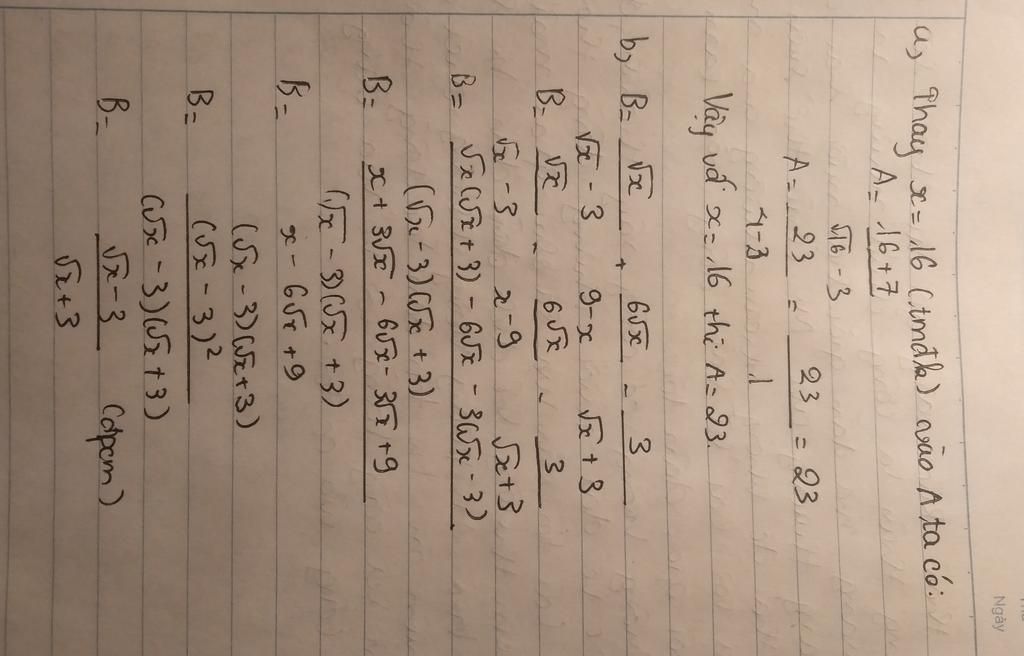 Ngày
a, Thay x = 16 (tmđk) vào A ta có:
A = (16 + 7)/(√16 - 3)
A = 23/(4-3) = 23/1 = 23
Vậy với x = 16 thì A = 23.
b, B = √x/(√x - 3) + 6√x/(9 - x) - 3/(√x + 3)
B = √x/(√x - 3) - 6√x/(x - 9) - 3/(√x + 3)
B = (√x(√x + 3) - 6√x - 3(√x - 3))/((√x - 3)(√x + 3))
B = (x + 3√x - 6√x - 3√x + 9)/((√x - 3)(√x + 3))
B = (x - 6√x + 9)/((√x - 3)(√x + 3))
B = (√x - 3)²/((√x - 3)(√x + 3))
B = (√x - 3)/(√x + 3) (đpcm)